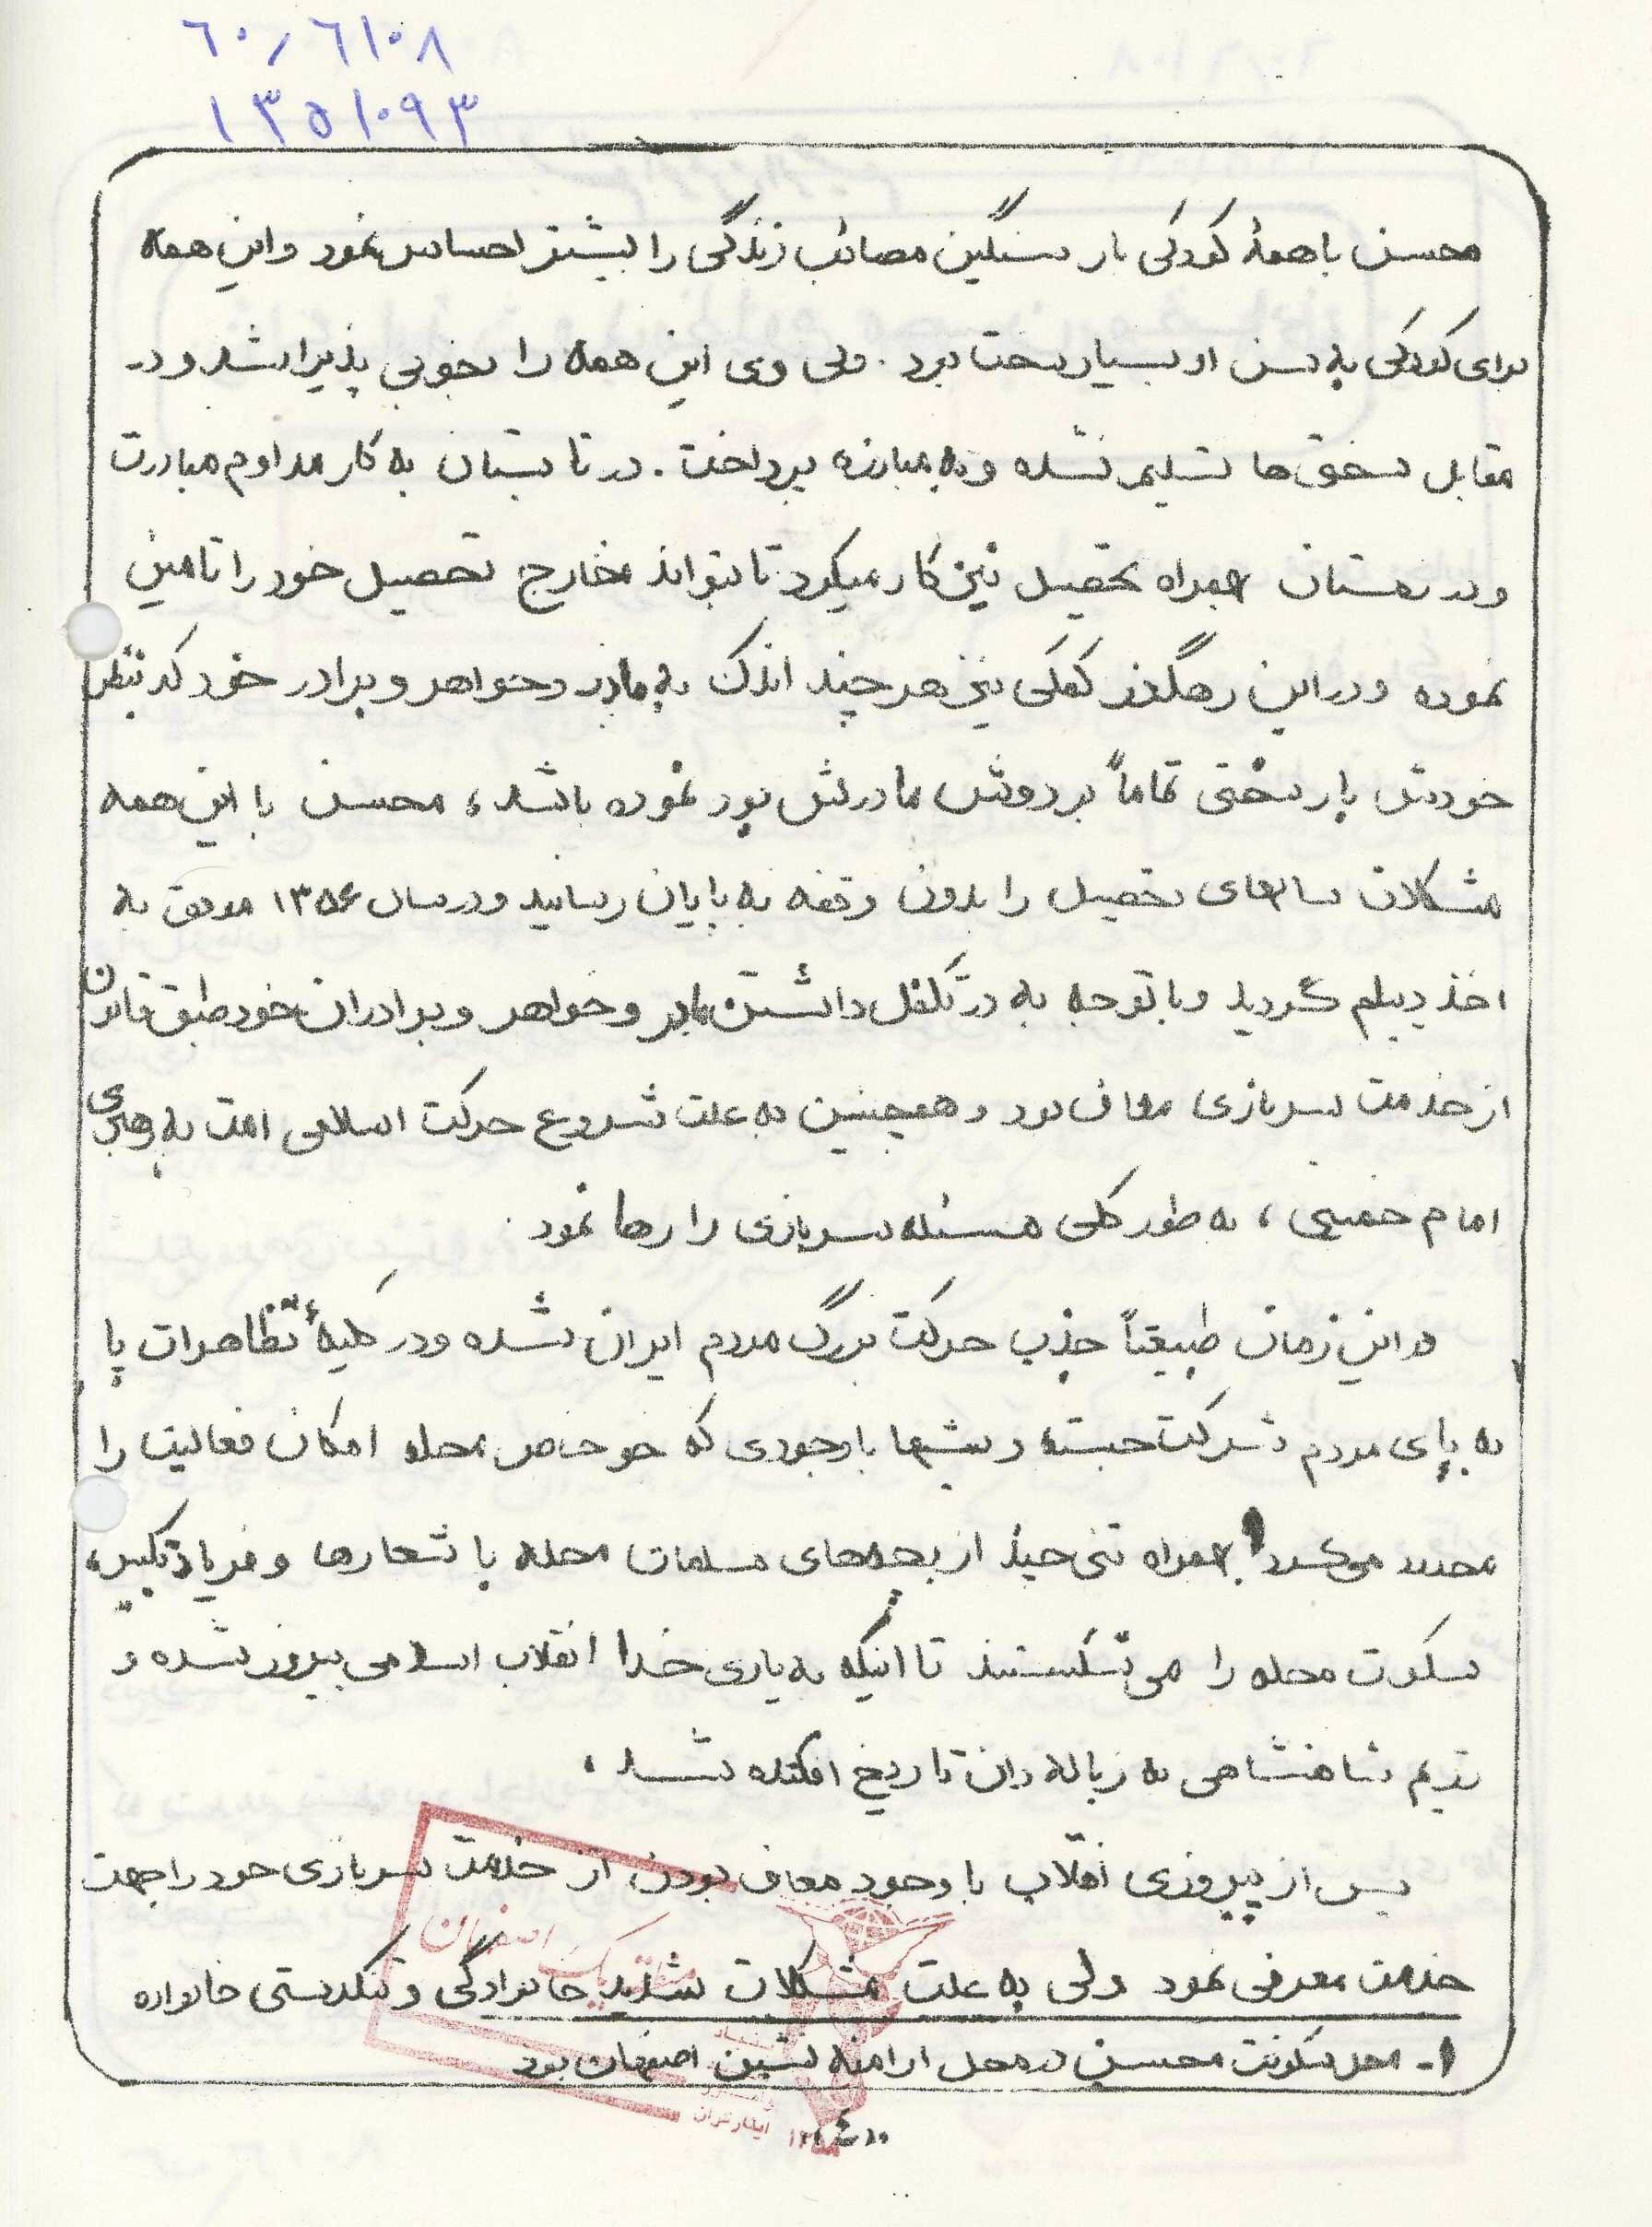 ٦٠٫٦١٠٨
١٣٥١٠٩٣
محسن با همهٔ کودکی بار سنگین مصائب زندگی را بیشتر احساس نمود و این همه
برای کودکی به سن او بسیار سخت بود. ولی وی این همه را بخوبی پذیرا شد و در
مقابل سختی‌ها تسلیم نشده و به مبارزه پرداخت. در تابستان به کار مداوم مبادرت
و در زمستان همراه تحصیل نیز کار میکرد تا بتواند مخارج تحصیل خود را تامین
نموده و در این رهگذر کمکی نیز هر چند اندک به مادر و خواهر و برادر خود که بنظر
خودش بار سختی تماماً بر دوش مادرش بود نموده باشد، محسن با این همه
مشکلات سالهای تحصیل را بدون وقفه به پایان رسانید و در سال ۱۳۵۶ موفق به
اخذ دیپلم گردید و با توجه به در تکفل داشتن مادر و خواهر و برادران خود طبق قانون
از خدمت سربازی معاف بود و همچنین به علت شروع حرکت اسلامی امت به رهبری
امام خمینی، به طور کلی مسئله سربازی را رها نمود.
در این زمان طبیعتاً جذب حرکت بزرگ مردم ایران شده و در کلیهٔ تظاهرات پا
به پای مردم شرکت جسته و شبها با وجودی که جو خاص محله امکان فعالیت را
محدود می‌کرد ۱ همراه تنی چند از بچه‌های مسلمان محله با شعارها و فریاد تکبیر،
سکوت محله را می‌شکستند تا اینکه به یاری خدا انقلاب اسلامی پیروز شده و
رژیم شاهنشاهی به زباله‌دان تاریخ افکنده شد.
پس از پیروزی انقلاب با وجود معاف بودن از خدمت سربازی خود را جهت
خدمت معرفی نمود ولی به علت مشکلات شدید خانوادگی و تنگدستی خانواده
۱- محل سکونت محسن در محل ارامنه نشین اصفهان بود
اصفهان
ایثارگران